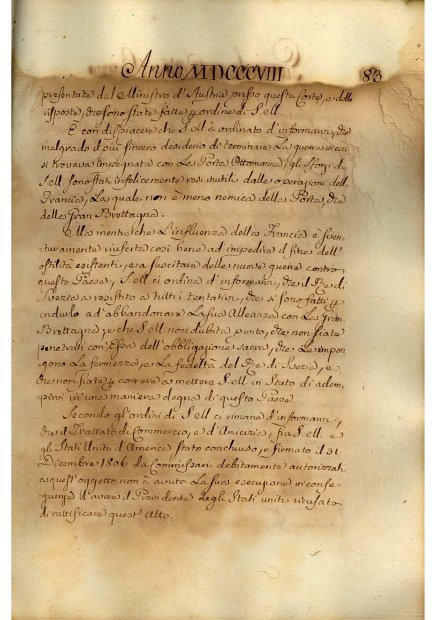 Anno MDCCCVIII 83
presentate dal Ministro d'Austria presso questa Corte, e delle
risposte, che sono state fatte per ordine di S. M.
È con dispiacere che S. M. è ordinato d'informarvi, che
malgrado il più sincero desiderio di terminare La guerra in cui
si trovava impegnata con La Porta Ottomanna, gli sforzi di
S. M. sono stati infelicemente resi inutili dalle operazioni della
Francia, La quale non è meno nemica della Porta, che
della Gran Brettagna.
Ma mentre che L'influenza della Francia è sven-
turamente riuscita così bene ad impedire il fine dell'
ostilità esistenti, e a suscitare delle nuove guerre contro
questo Paese, S. M. ci ordina d'informarvi, che il Re di
Svezia a resistito a tutti i tentativi, che si sono fatti per
indurlo ad abbandonare La sua Alleanza con La Gran
Brettagna; e che S. M. non dubita punto, che non siate
penetrati con Essa dell'obbligazione sacra, che Le impon-
gono La fermezza, e La fedeltà del Re di Svezia, e
che non siate per correre a mettere S. M. in stato di adem-
pirvi in una maniera degna di questo Paese.
Secondo gl'ordini di S. M. ci rimane d'informarvi,
che il Trattato di Commercio, e d'Amicizia, fra S. M. e
gli Stati Uniti d'America stato conchiuso, e firmato il 31
Dicembre 1806 da Commissari debitamente autorizzati
a quest'oggetto non à avuto La sua esecuzione in conse-
guenza d'avere il Presidente degli Stati uniti ricusato
di rattificare quest'Atto.